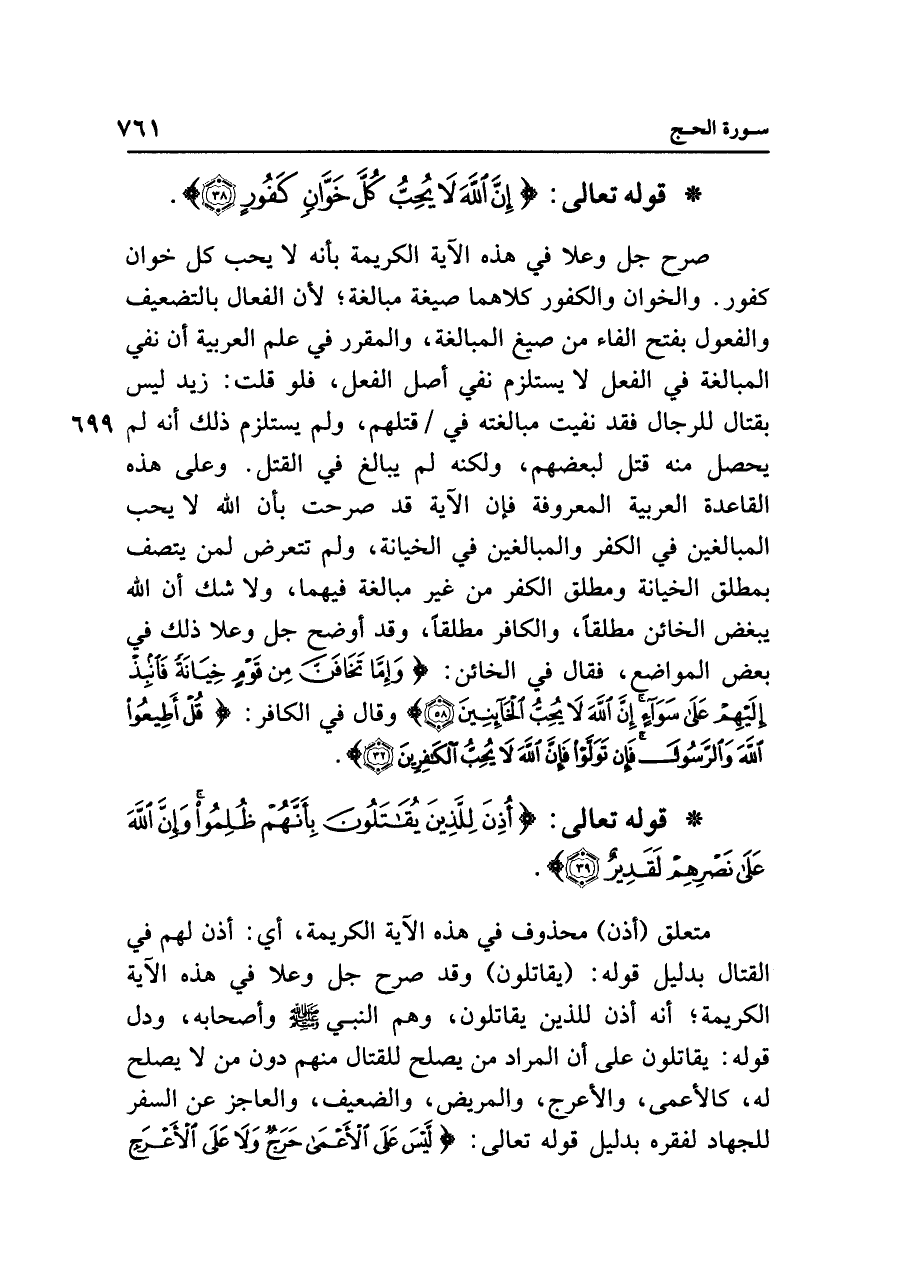 سورة الحج ٧٦١
* قوله تعالى: ﴿ إِنَّ ٱللَّهَ لَا يُحِبُّ كُلَّ خَوَّانٍ كَفُورٍ ٣٨﴾ .
صرح جل وعلا في هذه الآية الكريمة بأنه لا يحب كل خوان
كفور. والخوان والكفور كلاهما صيغة مبالغة؛ لأن الفعال بالتضعيف
والفعول بفتح الفاء من صيغ المبالغة، والمقرر في علم العربية أن نفي
المبالغة في الفعل لا يستلزم نفي أصل الفعل، فلو قلت: زيد ليس
بقتال للرجال فقد نفيت مبالغته في / قتلهم، ولم يستلزم ذلك أنه لم ٦٩٩
يحصل منه قتل لبعضهم، ولكنه لم يبالغ في القتل. وعلى هذه
القاعدة العربية المعروفة فإن الآية قد صرحت بأن الله لا يحب
المبالغين في الكفر والمبالغين في الخيانة، ولم تتعرض لمن يتصف
بمطلق الخيانة ومطلق الكفر من غير مبالغة فيهما، ولا شك أن الله
يبغض الخائن مطلقاً، والكافر مطلقاً، وقد أوضح جل وعلا ذلك في
بعض المواضع، فقال في الخائن: ﴿ وَإِمَّا تَخَافَنَّ مِن قَوْمٍ خِيَانَةً فَٱنۢبِذْ
إِلَيْهِمْ عَلَىٰ سَوَآءٍ ۚ إِنَّ ٱللَّهَ لَا يُحِبُّ ٱلْخَآئِنِينَ ٥٨﴾ وقال في الكافر: ﴿ قُلْ أَطِيعُوا۟
ٱللَّهَ وَٱلرَّسُولَ ۖ فَإِن تَوَلَّوْا۟ فَإِنَّ ٱللَّهَ لَا يُحِبُّ ٱلْكَٰفِرِينَ ٣٢﴾ .
* قوله تعالى: ﴿ أُذِنَ لِلَّذِينَ يُقَٰتَلُونَ بِأَنَّهُمْ ظُلِمُوا۟ ۚ وَإِنَّ ٱللَّهَ
عَلَىٰ نَصْرِهِمْ لَقَدِيرٌ ٣٩﴾ .
متعلق (أذن) محذوف في هذه الآية الكريمة، أي: أذن لهم في
القتال بدليل قوله: (يقاتلون) وقد صرح جل وعلا في هذه الآية
الكريمة؛ أنه أذن للذين يقاتلون، وهم النبي ﷺ وأصحابه، ودل
قوله: يقاتلون على أن المراد من يصلح للقتال منهم دون من لا يصلح
له، كالأعمى، والأعرج، والمريض، والضعيف، والعاجز عن السفر
للجهاد لفقره بدليل قوله تعالى: ﴿ لَّيْسَ عَلَى ٱلْأَعْمَىٰ حَرَجٌ وَلَا عَلَى ٱلْأَعْرَجِ